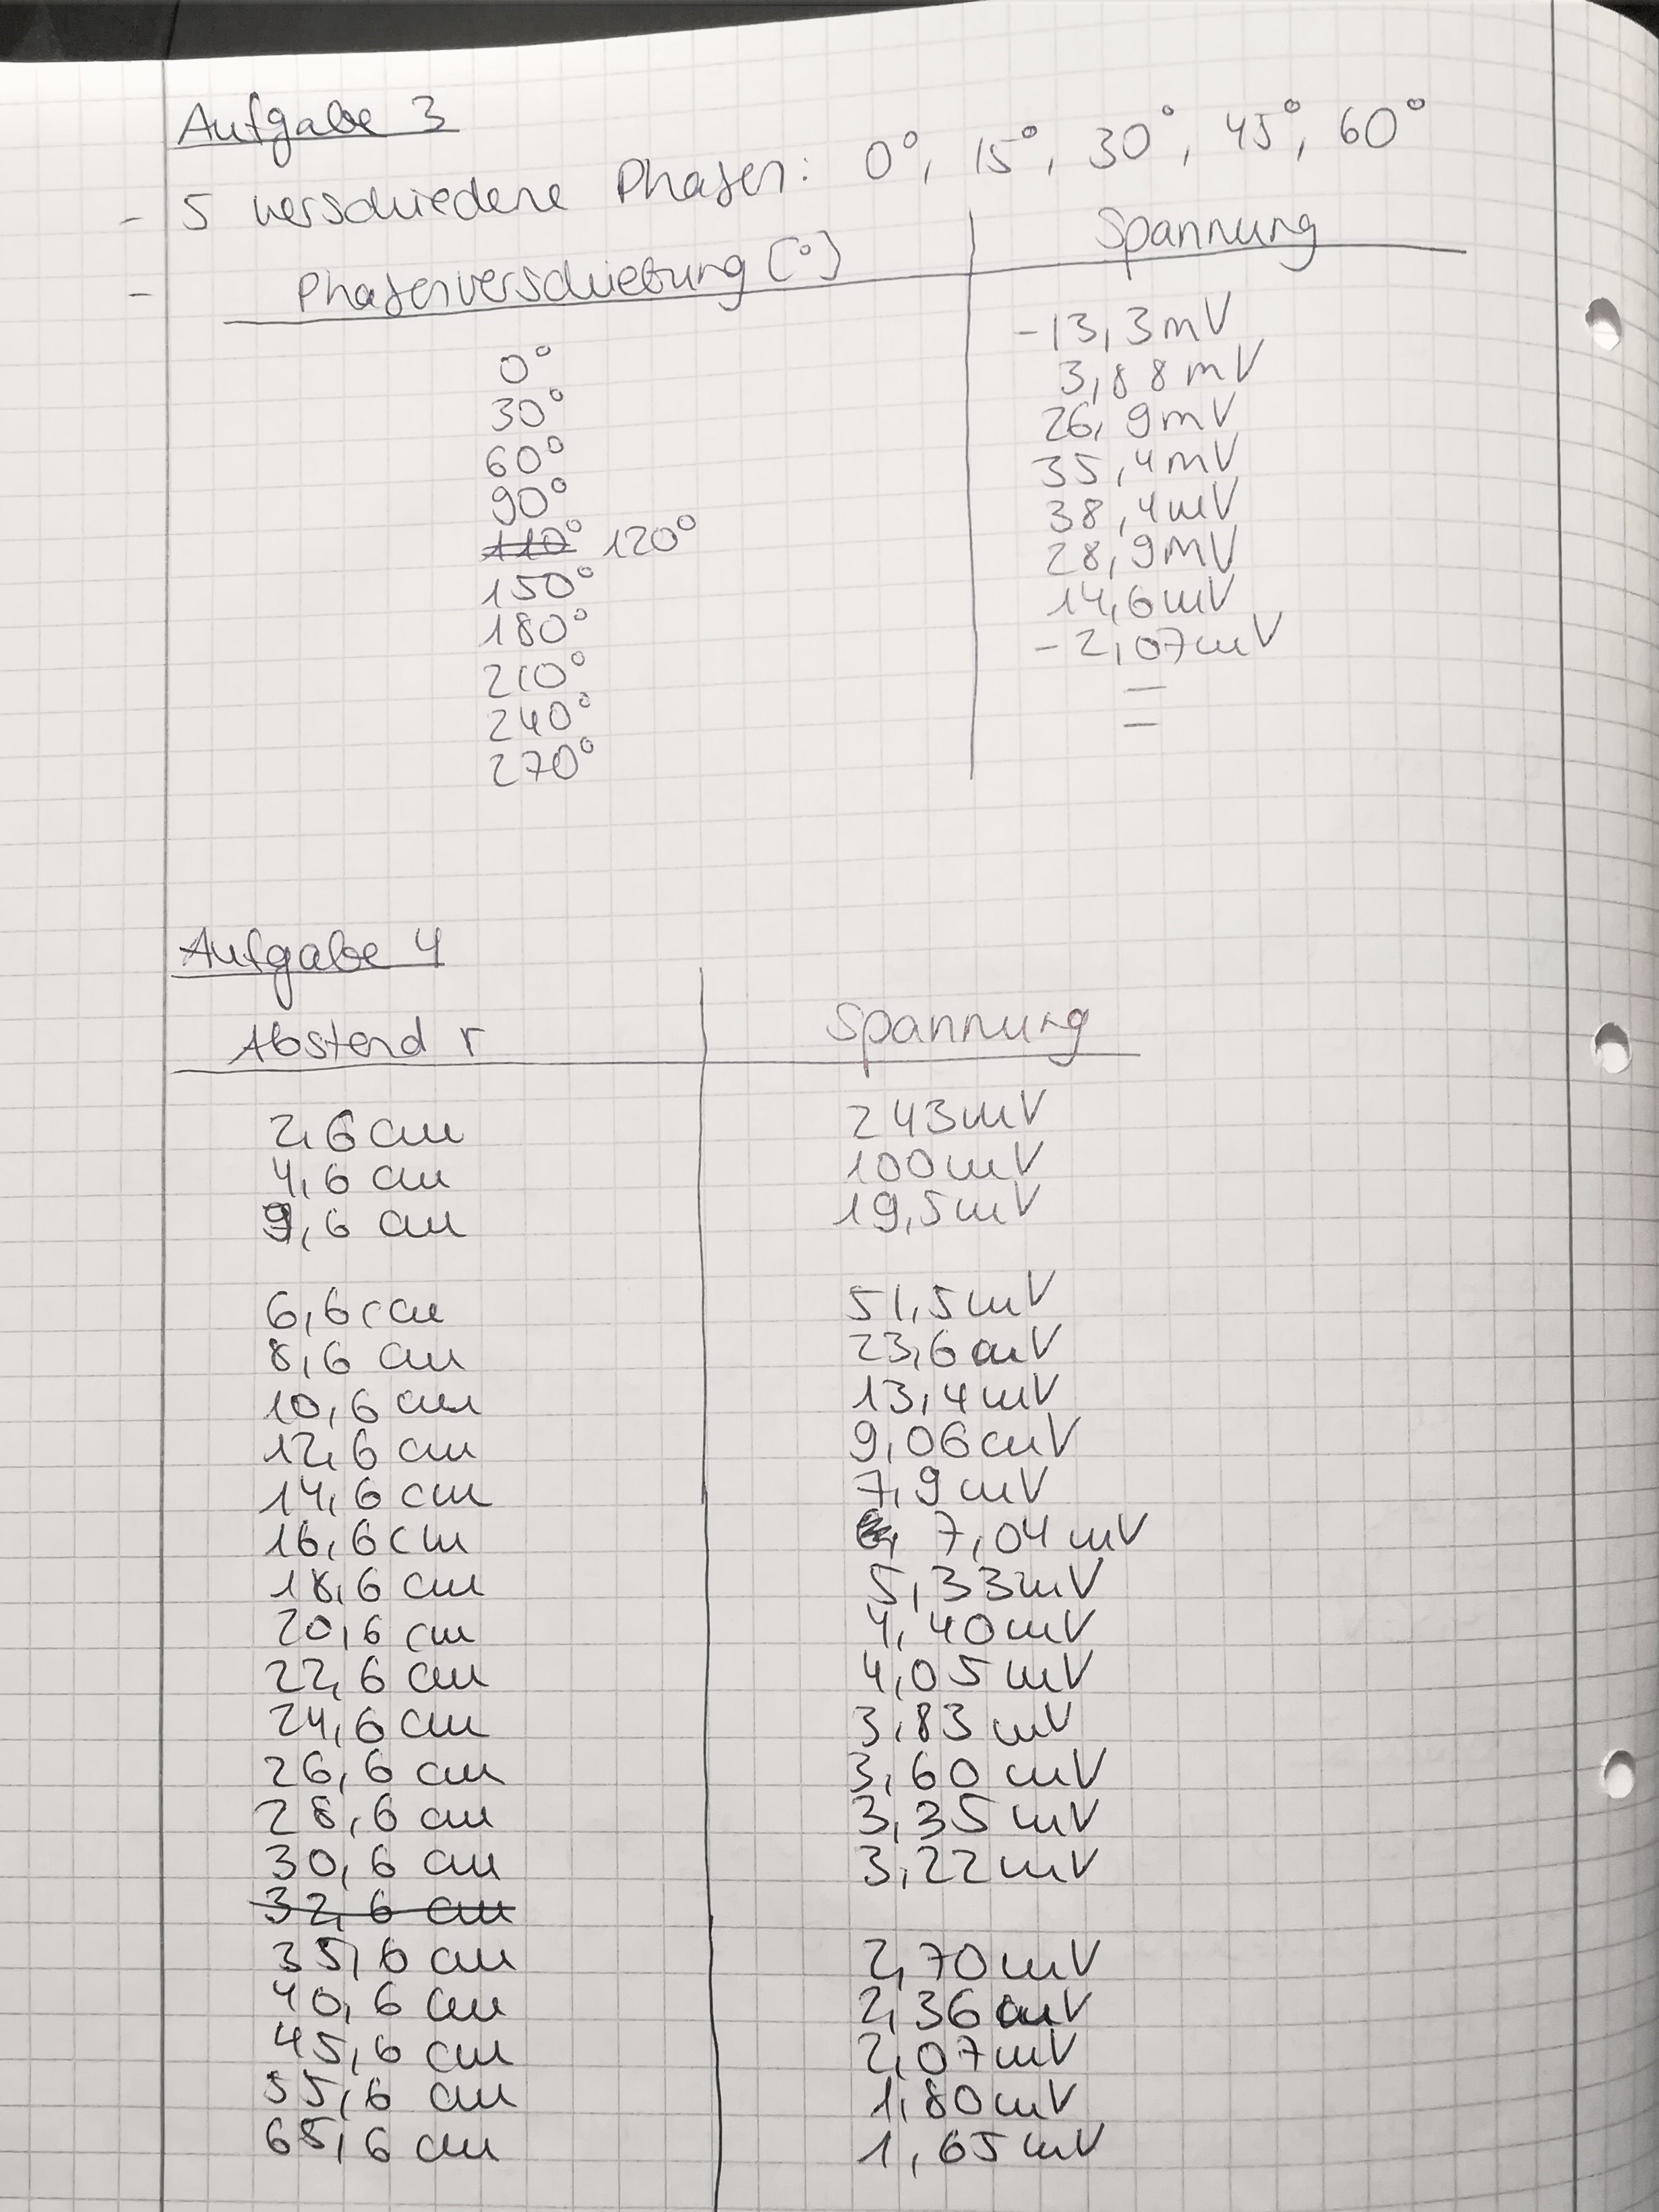 Aufgabe 3
- 5 verschiedene Phasen: 0°, 15°, 30°, 45°, 60°
- Phasenverschiebung (°) Spannung
0° -13,3mV
30° 3,88mV
60° 26,9mV
90° 35,4mV
110° 120° 38,4mV
150° 28,9mV
180° 14,6mV
210° -2,07mV
240° —
270° —
Aufgabe 4
Abstand r Spannung
2,6 cm 243mV
4,6 cm 100mV
9,6 cm 19,5mV
6,6 cm 51,5mV
8,6 cm 23,6mV
10,6 cm 13,4mV
12,6 cm 9,06mV
14,6 cm 7,9mV
16,6 cm 7,04mV
18,6 cm 5,33mV
20,6 cm 4,40mV
22,6 cm 4,05mV
24,6 cm 3,83mV
26,6 cm 3,60mV
28,6 cm 3,35mV
30,6 cm 3,22mV
32,6 cm
35,6 cm 2,70mV
40,6 cm 2,36mV
45,6 cm 2,07mV
55,6 cm 1,80mV
65,6 cm 1,65mV